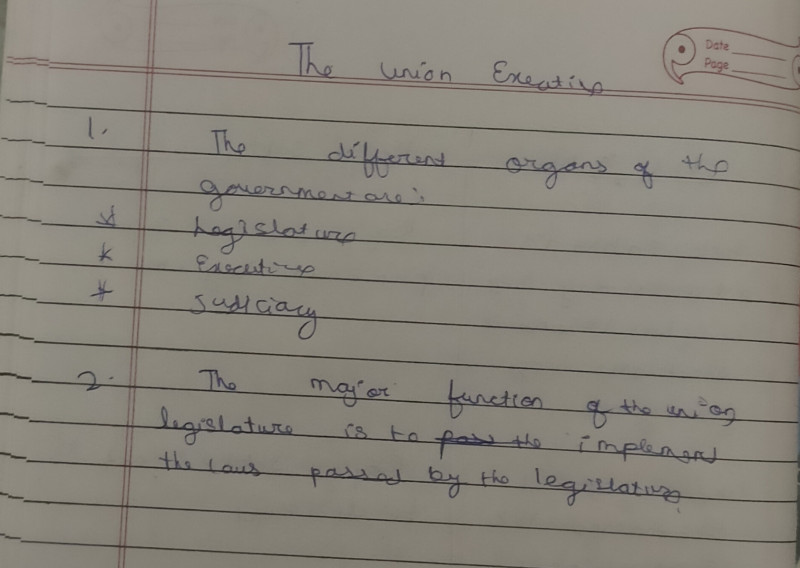 Date
Page
The union Exeative
1. The different organs of the
government are:
* Legislature
* Executive
* Judiciary
2. The major function of the union
legislature is to pass the implement
the laws passed by the legislative.